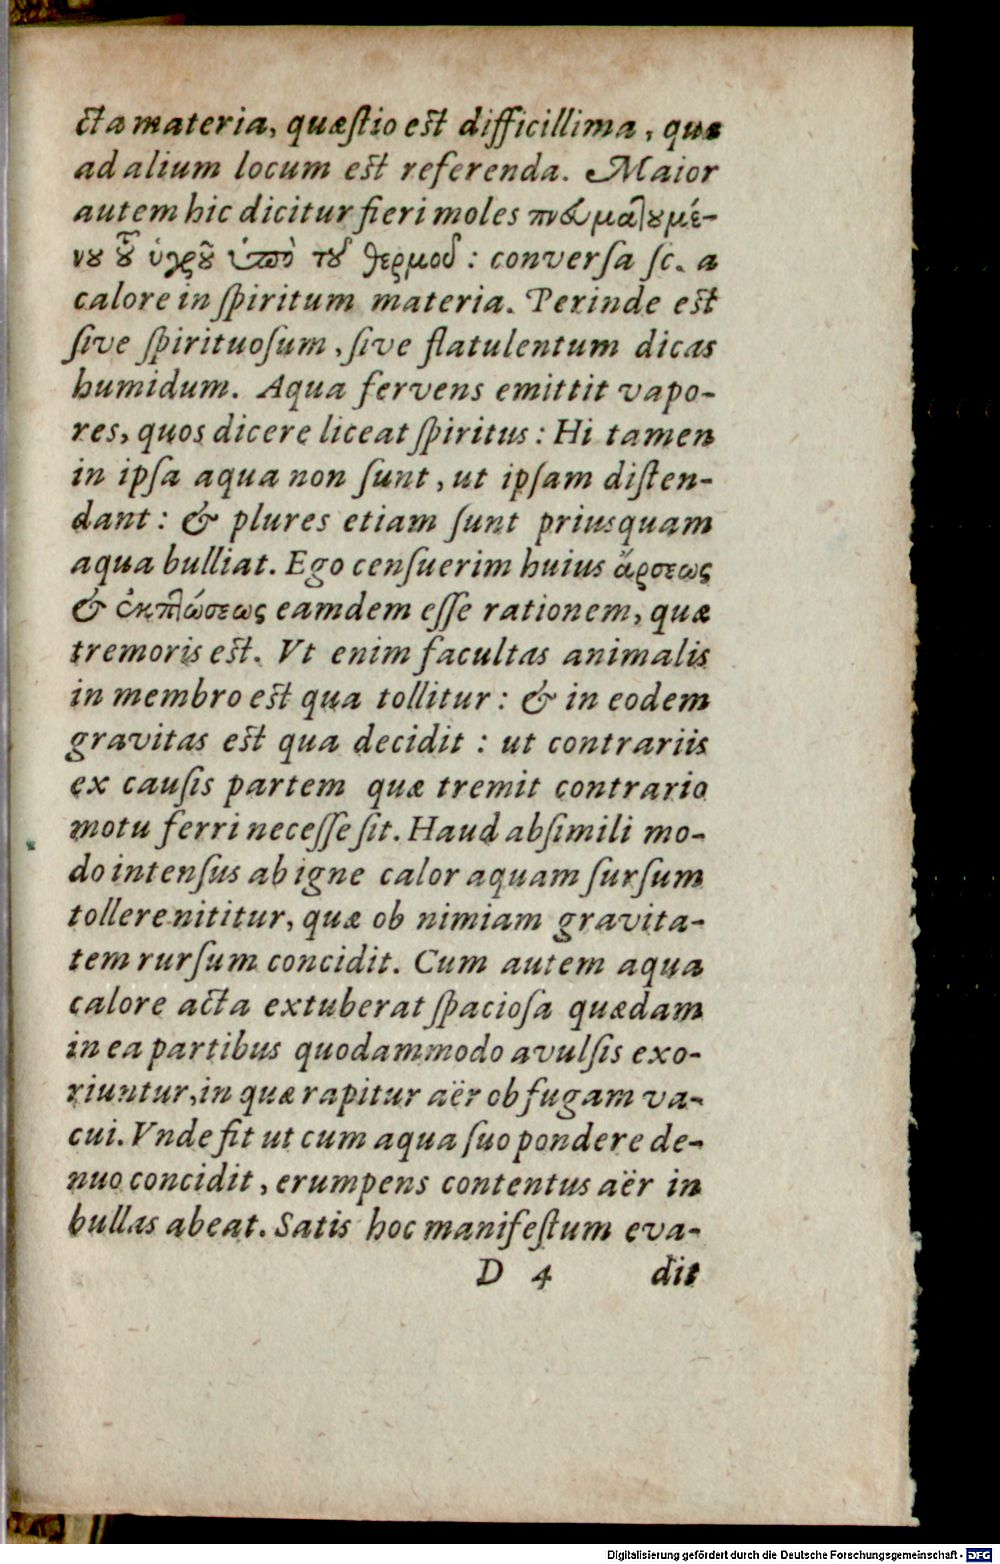 cta materia, quæstio est difficillima, quæ
ad alium locum est referenda. Maior
autem hic dicitur fieri moles πνευματουμέ-
νου τοῦ ὑγροῦ ὑπὸ τοῦ θερμοῦ: conversa sc. a
calore in spiritum materia. Perinde est
sive spirituosum, sive flatulentum dicas
humidum. Aqua fervens emittit vapo-
res, quos dicere liceat spiritus: Hi tamen
in ipsa aqua non sunt, ut ipsam disten-
dant: & plures etiam sunt priusquam
aqua bulliat. Ego censuerim huius ἄρσεως
& ἐκπτώσεως eamdem esse rationem, quæ
tremoris est. Vt enim facultas animalis
in membro est qua tollitur: & in eodem
gravitas est qua decidit: ut contrariis
ex causis partem quæ tremit contrario
motu ferri necesse sit. Haud absimili mo-
do intensus ab igne calor aquam sursum
tollere nititur, quæ ob nimiam gravita-
tem rursum concidit. Cum autem aqua
calore acta extuberat spaciosa quædam
in ea partibus quodammodo avulsis exo-
riuntur, in quæ rapitur aër ob fugam va-
cui. Vnde fit ut cum aqua suo pondere de-
nuo concidit, erumpens contentus aër in
bullas abeat. Satis hoc manifestum eva-
D 4 dit
Digitalisierung gefördert durch die Deutsche Forschungsgemeinschaft - DFG